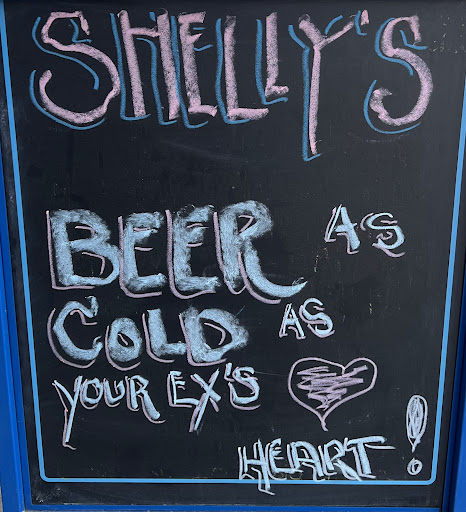 SHELLY'S
BEER AS
COLD AS
YOUR EX'S
HEART!